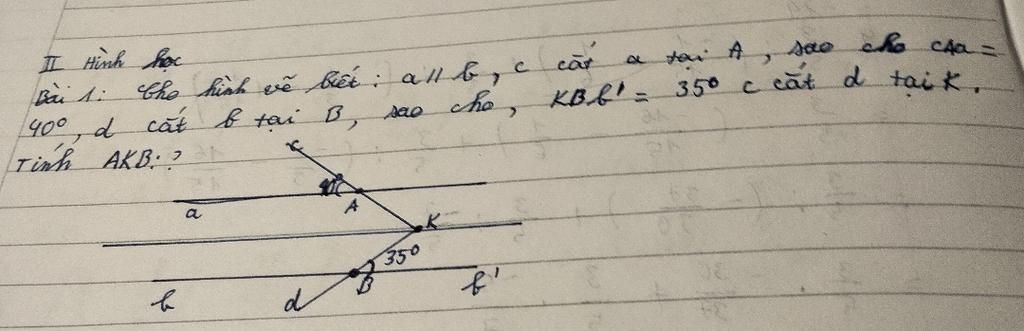 II Hình học
Bài 1: Cho hình vẽ biết: a // b, c cắt a tại A, sao cho cAa =
40°, d cắt b tại B, sao cho, KBb' = 35° c cắt d tại K.
Tính AKB:?
c
40°
a
A
K
35°
b
d
B
b'